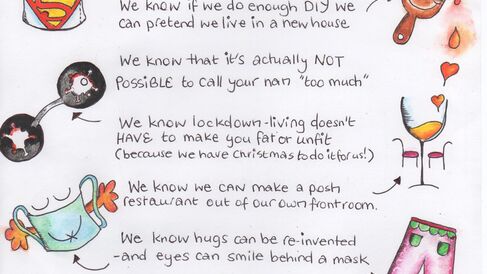 We know if we do enough DIY we
can pretend we live in a new house
We know that it's actually NOT
POSSIBLE to call your nan "too much"
We know lockdown-living doesn't
HAVE to make you fat or unfit
(because we have Christmas to do it for us!)
We know we CAN make a posh
restaurant out of our own front room.
We know hugs can be re-invented
-and eyes can smile behind a mask